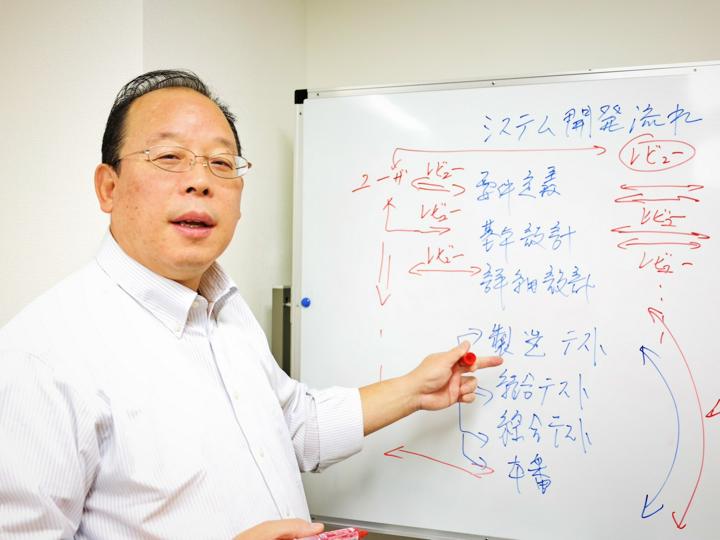 システム開発流れ
レビュー
ユーザ レビュー 要件定義
レビュー 基本設計 レビュー
レビュー 詳細設計 レビュー
製造テスト
結合テスト
総合テスト
本番